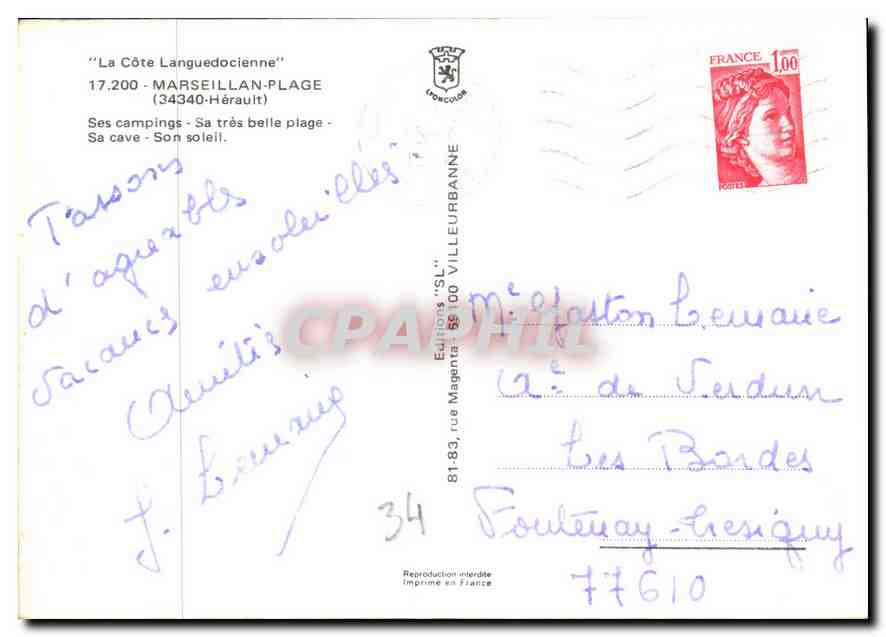 "La Côte Languedocienne"
17.200 - MARSEILLAN-PLAGE
(34340-Hérault)
Ses campings - Sa très belle plage -
Sa cave - Son soleil.
LYONCOLOR
FRANCE 1,00
POSTES
Passons
d'agréables
vacances ensoleillées
Amitiés
J. Lemaire
34
Editions "SL"
81-83, rue Magenta - 69100 VILLEURBANNE
CPAPHIL
Mr Gaston Lemaire
de Verdun
Les Bordes
Fontenay-Tresigny
77610
Reproduction interdite
Imprimé en France